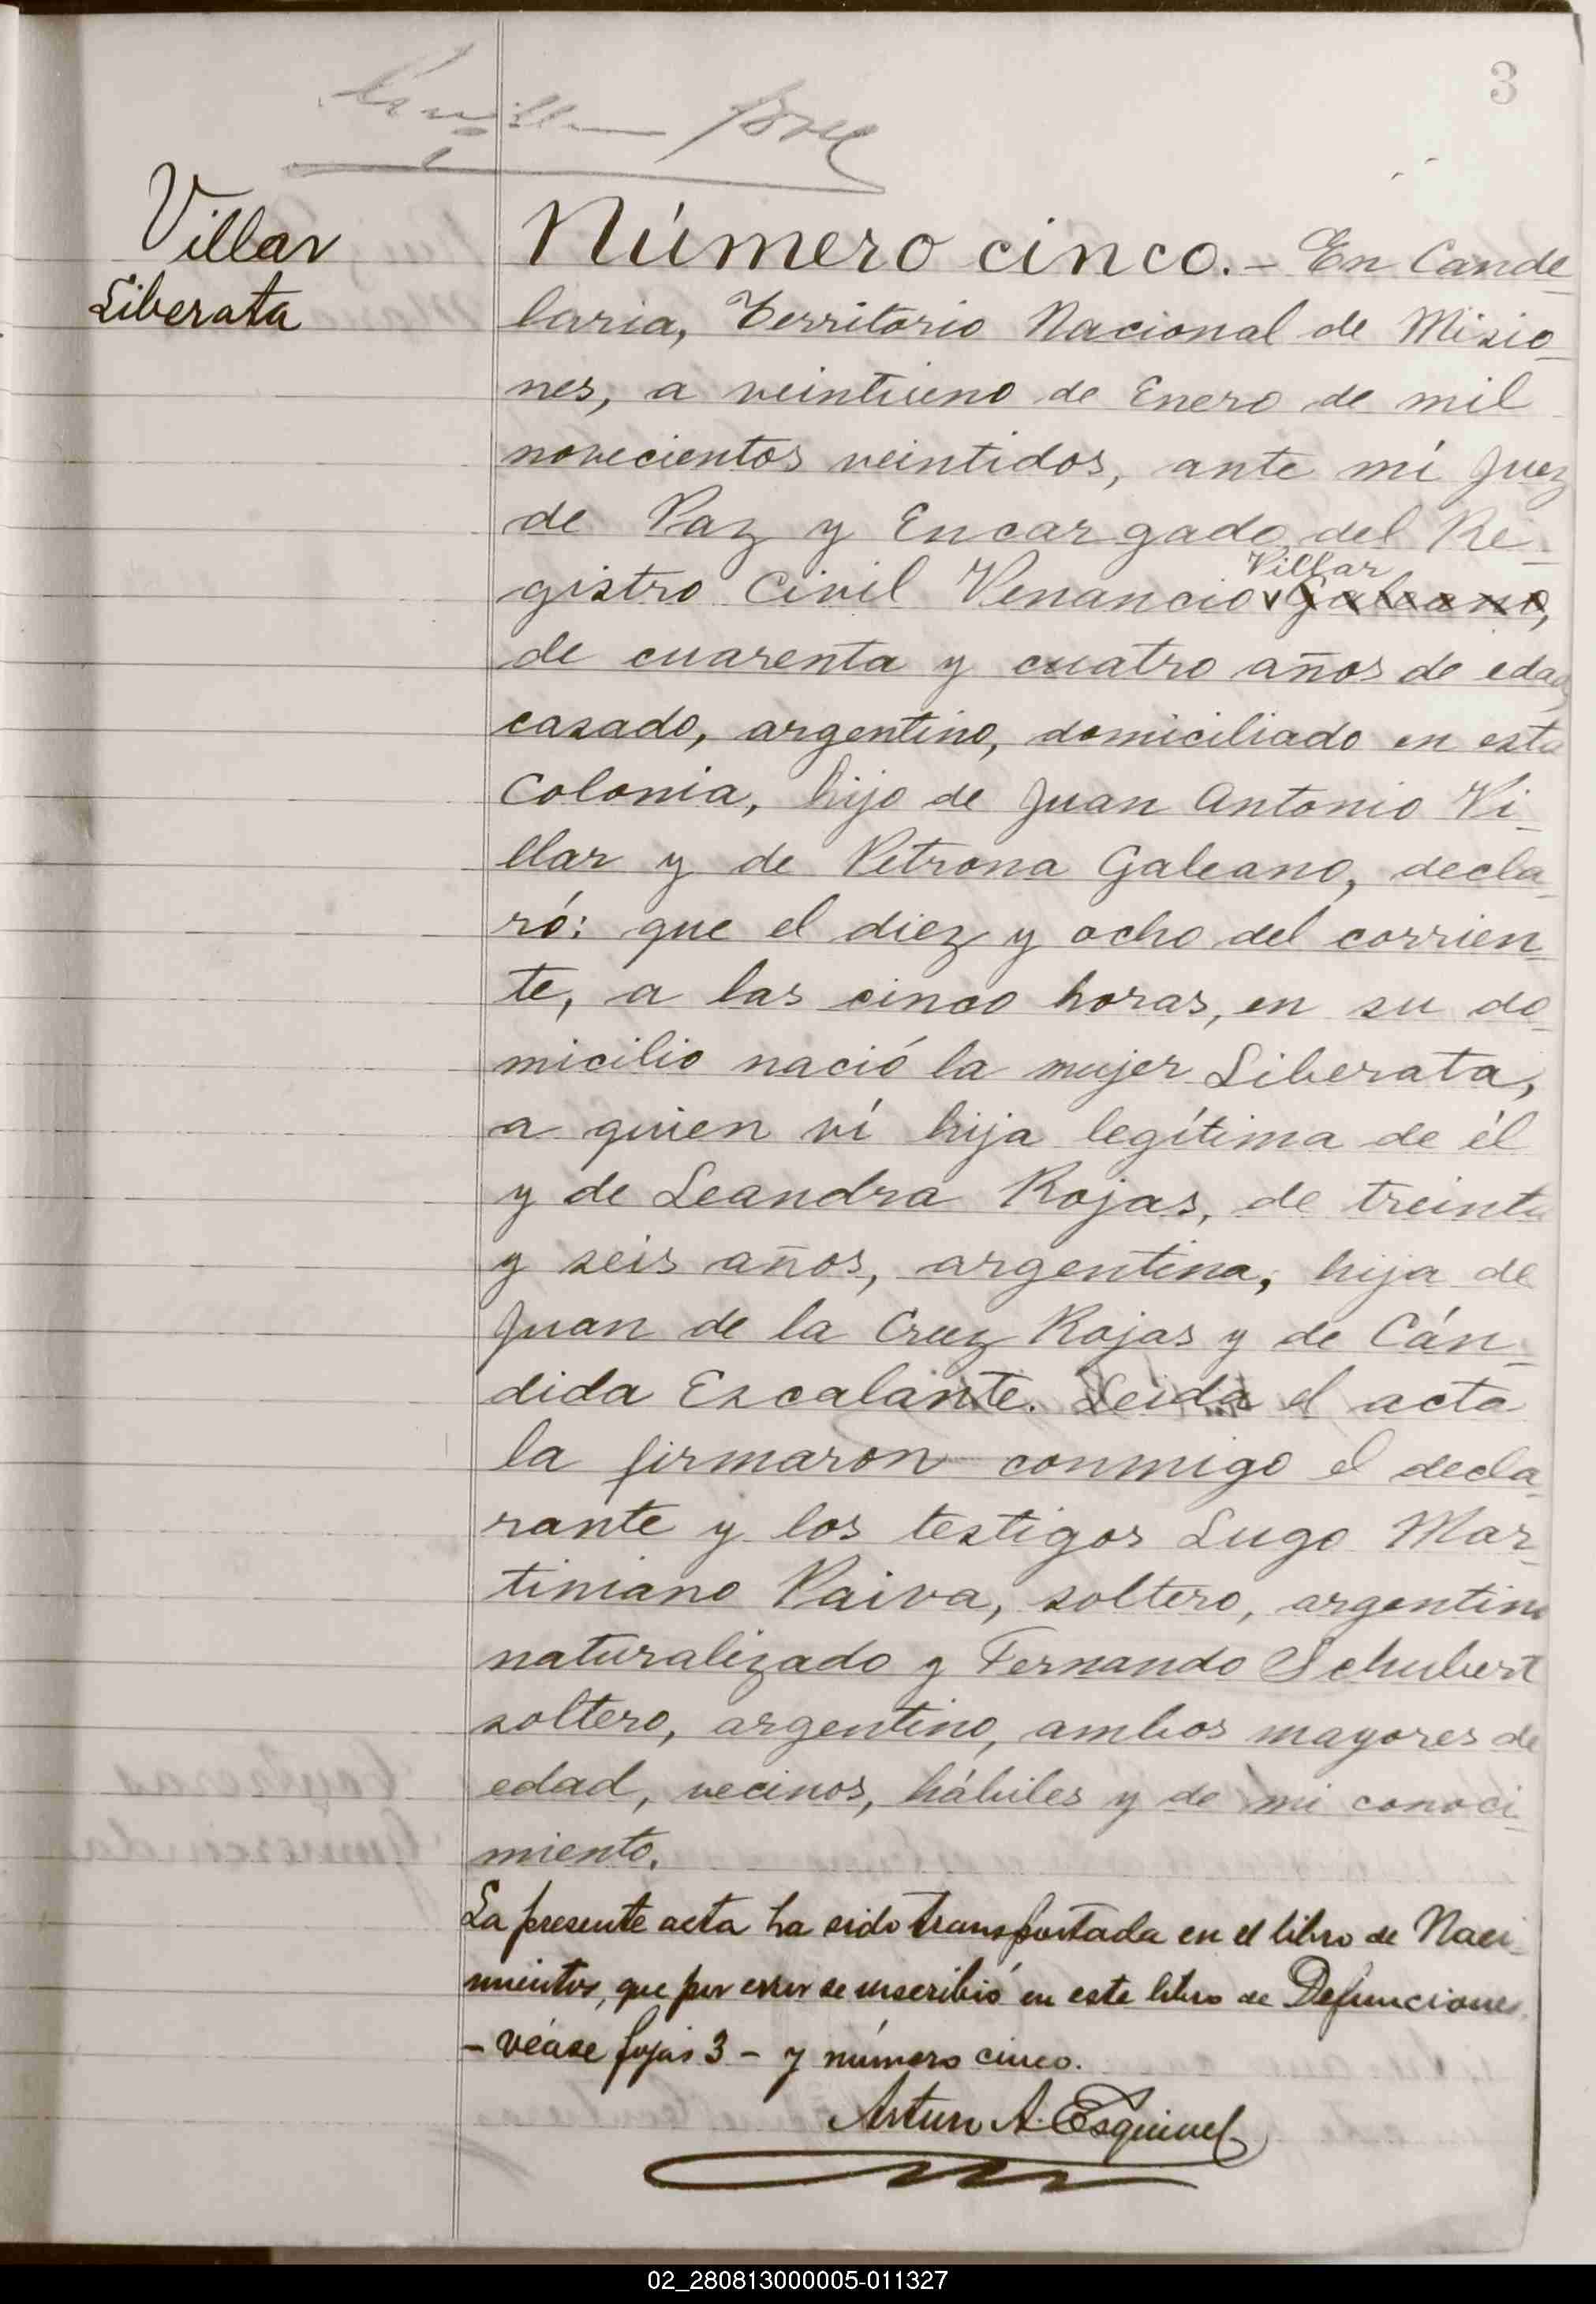 3
Villar
Liberata
Número cinco. - En Cande_
laria, Territorio Nacional de Misio_
nes, a veintiuno de Enero de mil
novecientos veintidos, ante mí Juez
de Paz y Encargado del Re_
gistro Civil Venancio Villar Galeano,
de cuarenta y cuatro años de edad,
casado, argentino, domiciliado en esta
Colonia, hijo de Juan Antonio Vi_
llar y de Petrona Galeano, decla_
ró: que el diez y ocho del corrien_
te, a las cinco horas, en su do_
micilio nació la mujer Liberata,
a quien ví hija legítima de él
y de Leandra Rojas, de treinta
y seis años, argentina, hija de
Juan de la Cruz Rojas y de Cán_
dida Escalante. Leida el acta
la firmaron conmigo el decla_
rante y los testigos Lugo Mar_
tiniano Paiva, soltero, argentino
naturalizado y Fernando Schubert
soltero, argentino, ambos mayores de
edad, vecinos, hábiles y de mi conoci_
miento.
La presente acta ha sido transportada en el libro de Naci_
mientos, que por error se inscribió en este libro de Defunciones
- véase fojas 3 - y número cinco.
Arturo A. Esquivel
02_280813000005-011327